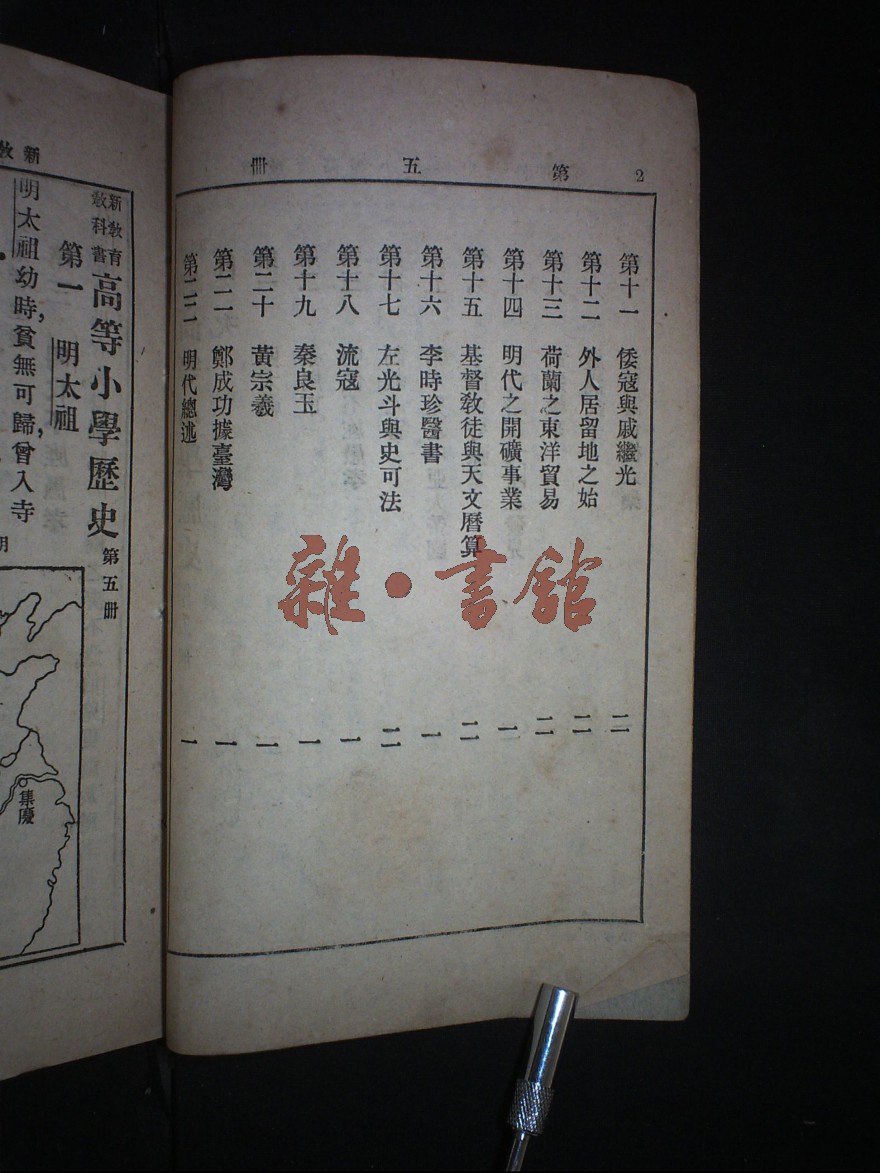 2 第五冊
第十一 倭寇與戚繼光 二
第十二 外人居留地之始 二
第十三 荷蘭之東洋貿易 二
第十四 明代之開礦事業 一
第十五 基督教徒與天文曆算 二
第十六 李時珍醫書 一
第十七 左光斗與史可法 二
第十八 流寇 一
第十九 秦良玉 一
第二十 黃宗羲 一
第二一 鄭成功據臺灣 一
第二二 明代總述 一
雜·書館
新教
新教育教科書 高等小學歷史 第五冊
第一 明太祖
明太祖幼時，貧無可歸，曾入寺
明
集慶